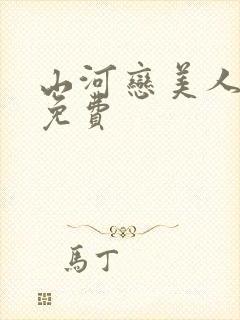 山河戀美人
免費
馬丁